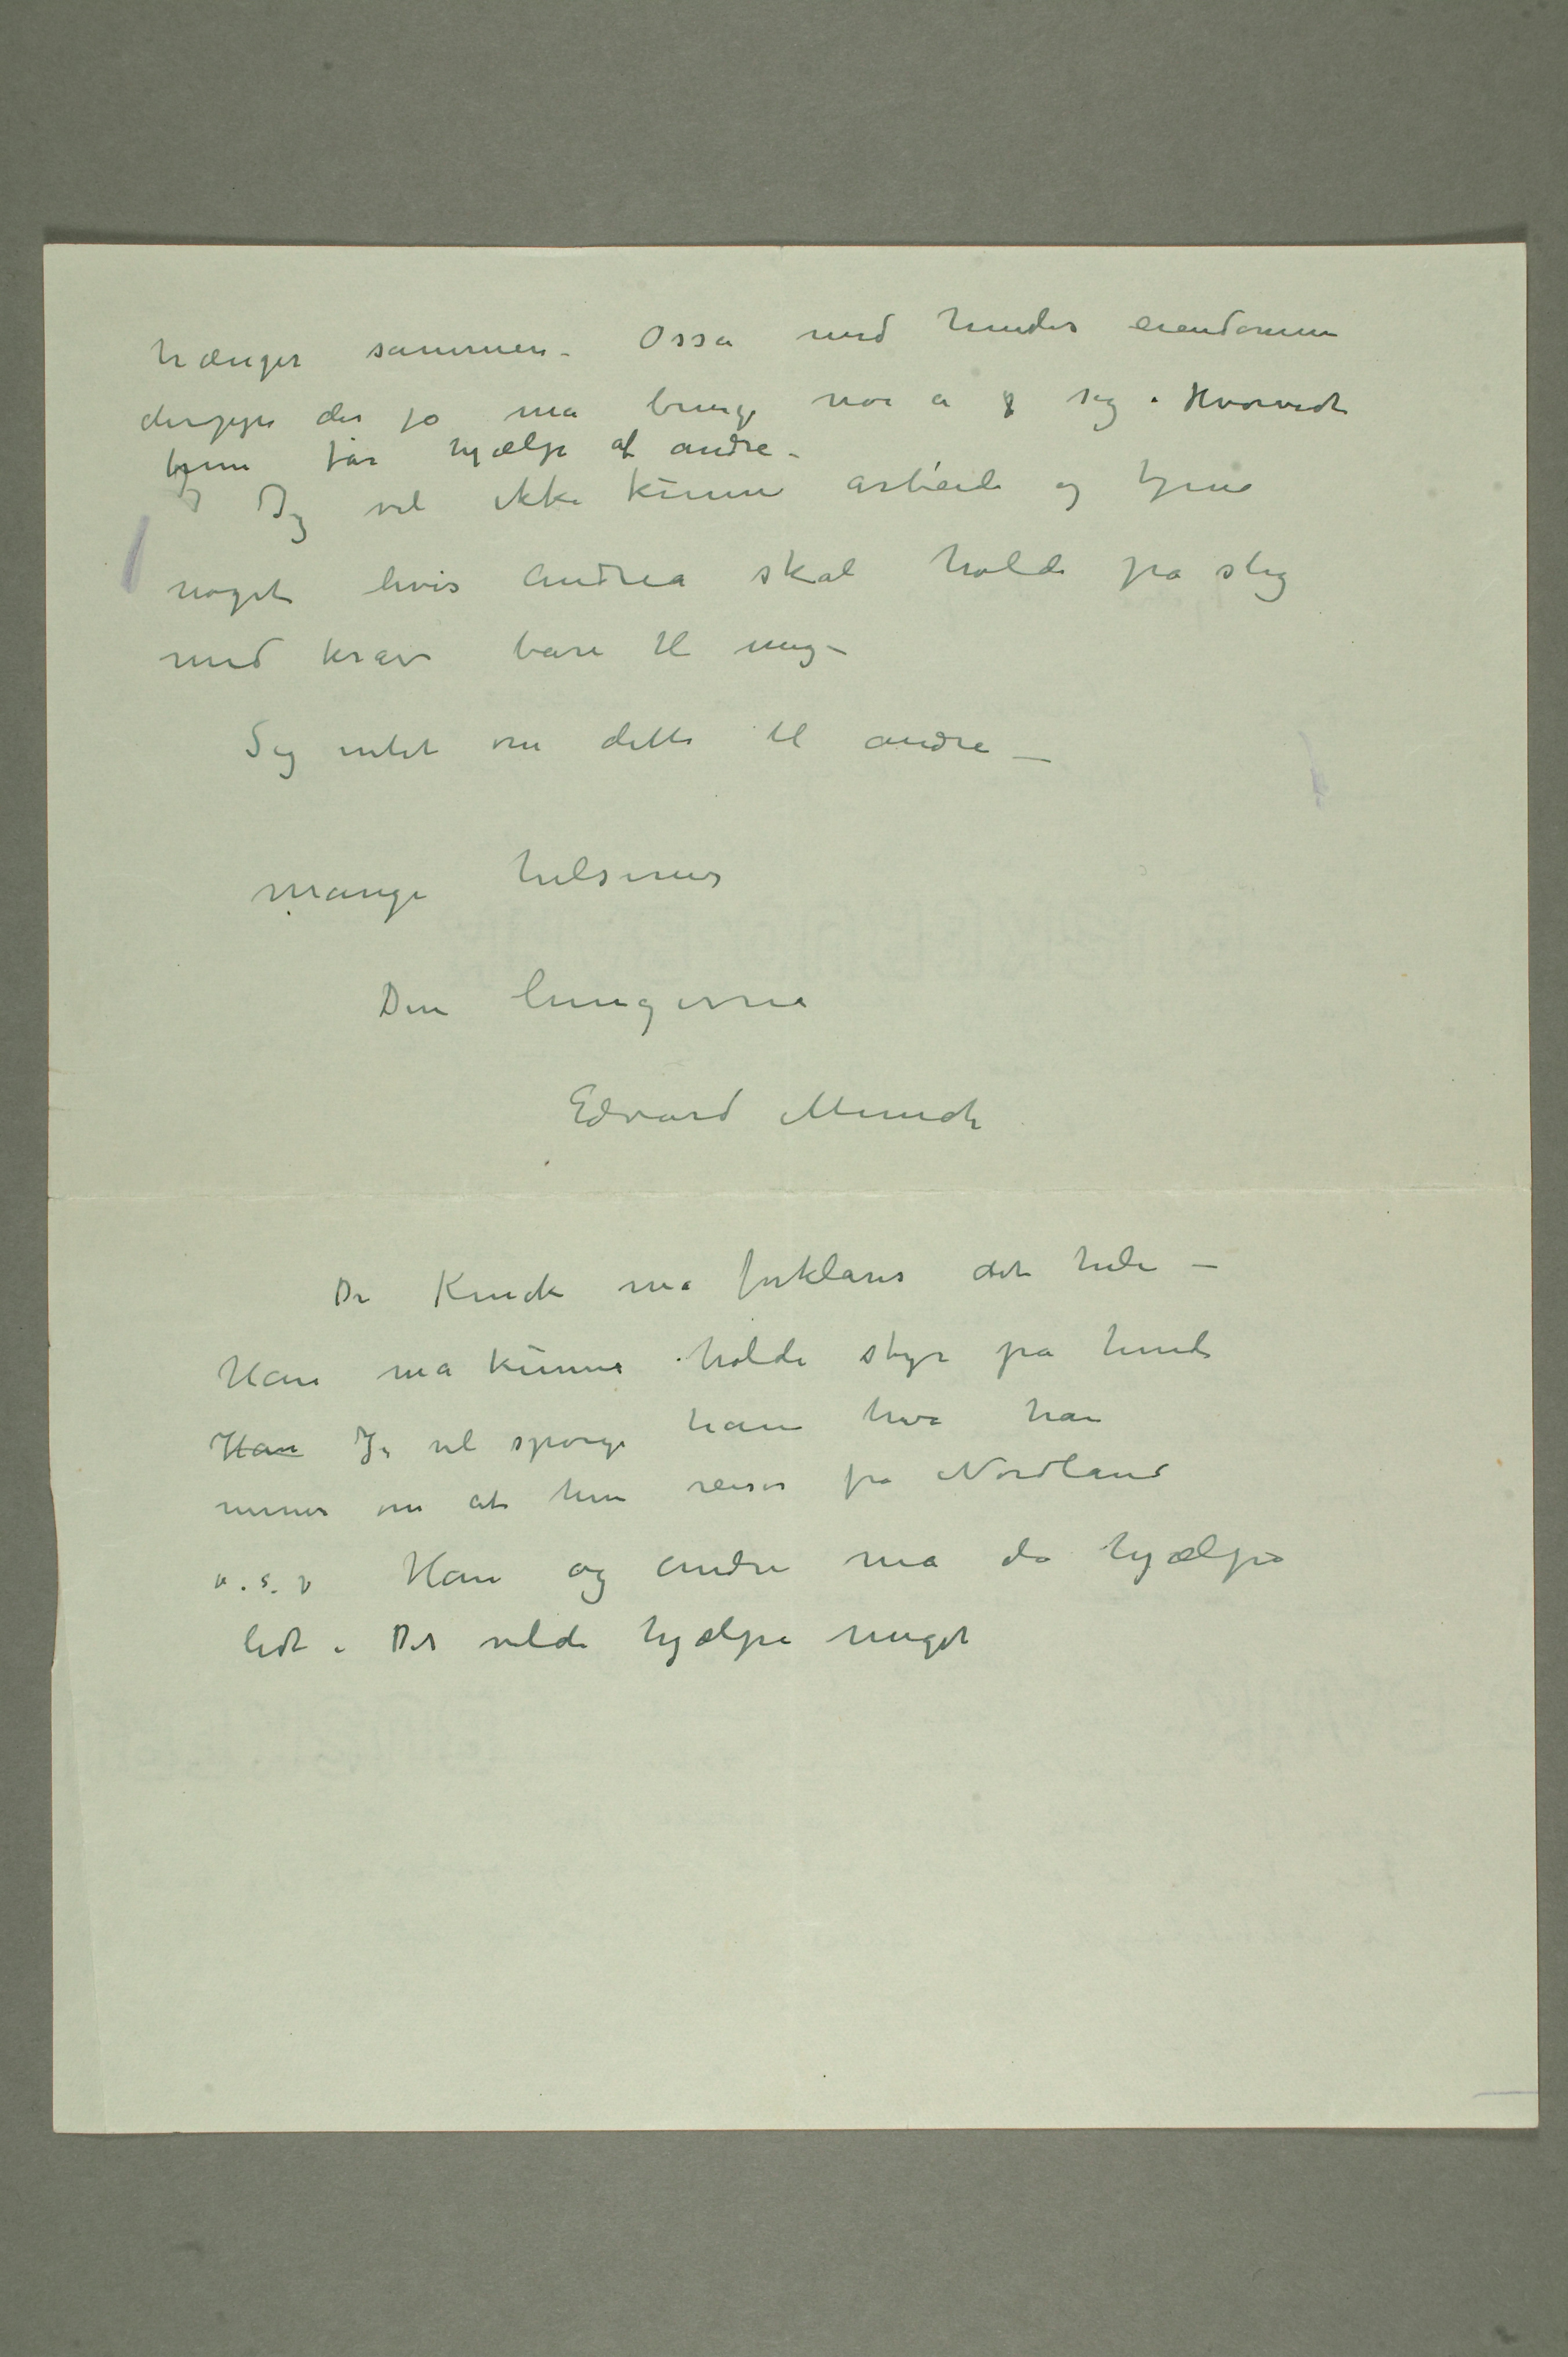 hænger sammen – Osså med hendes eiendomme
deroppe der jo må bringe noe a sig. Hvorvidt
hun får hjælp af andre –
Jeg vil ikke kunne arbeide og tjene
noget hvis Andrea skal holde på slig
med krav bare til mig –
Sig intet om dette til andre –
Mange hilsener
Din hengivne
Edvard Munch
Dr Kinck må forklares det hele –
Han må kunne holde styr på hende
Han Jeg vil spørge ham hva han
mener om at hun reiser fra Nordland
u.s.v Han og andre må da hjælpe
lidt. Det vilde hjælpe meget